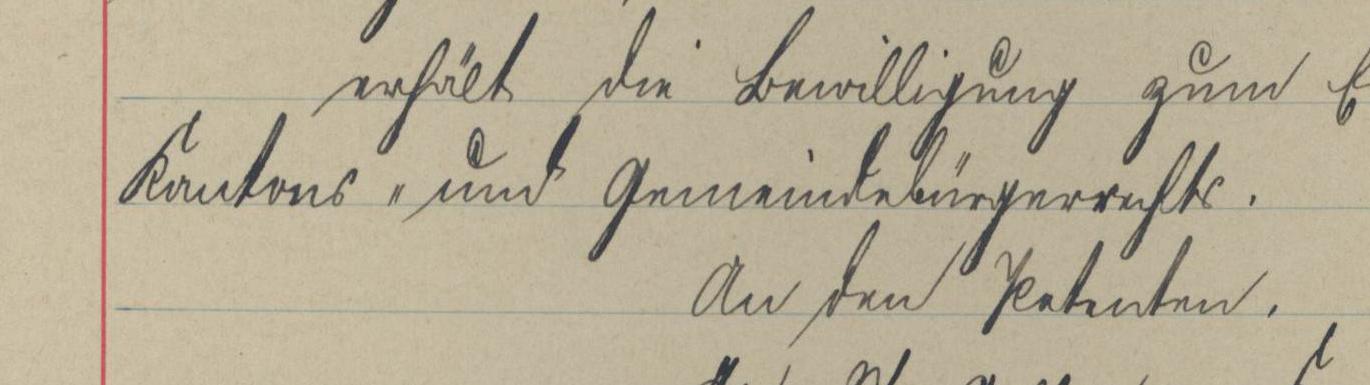 erhält die Bewilligung zum
Kantons- und Gemeindebürgerrechts.
An den Petenten.